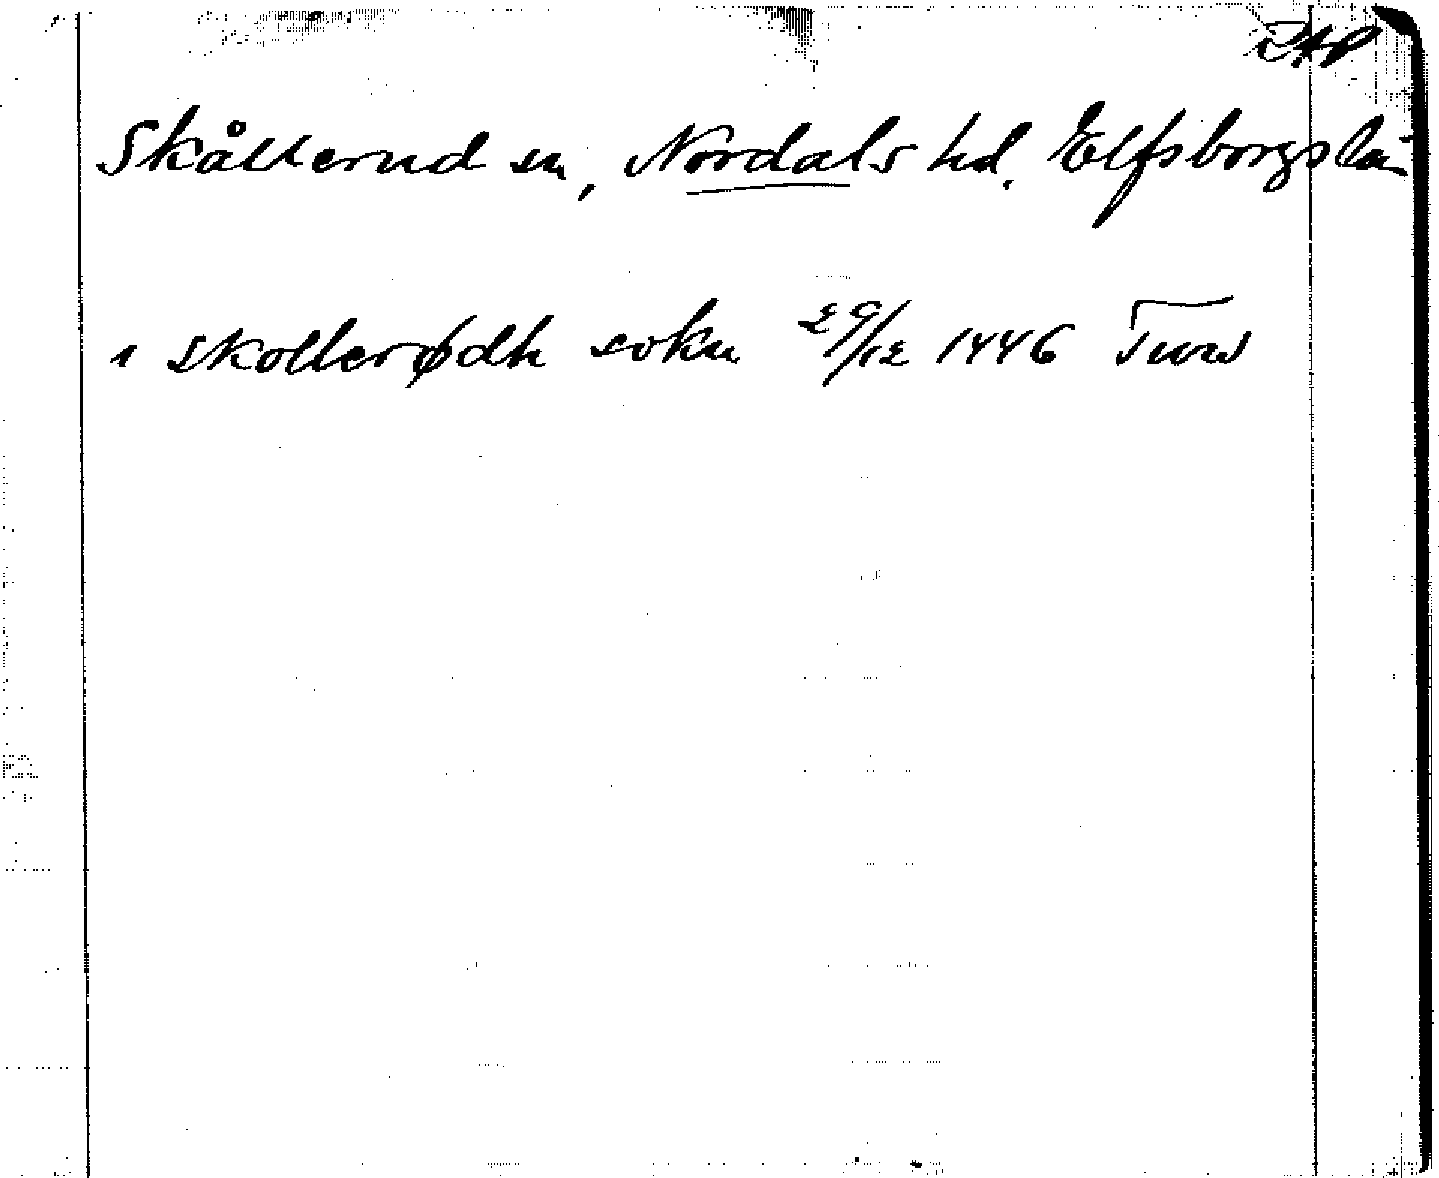 Skållerud sn, Nordals hd. Elfsborgs län
i skollerødh sokn 29/12 1446